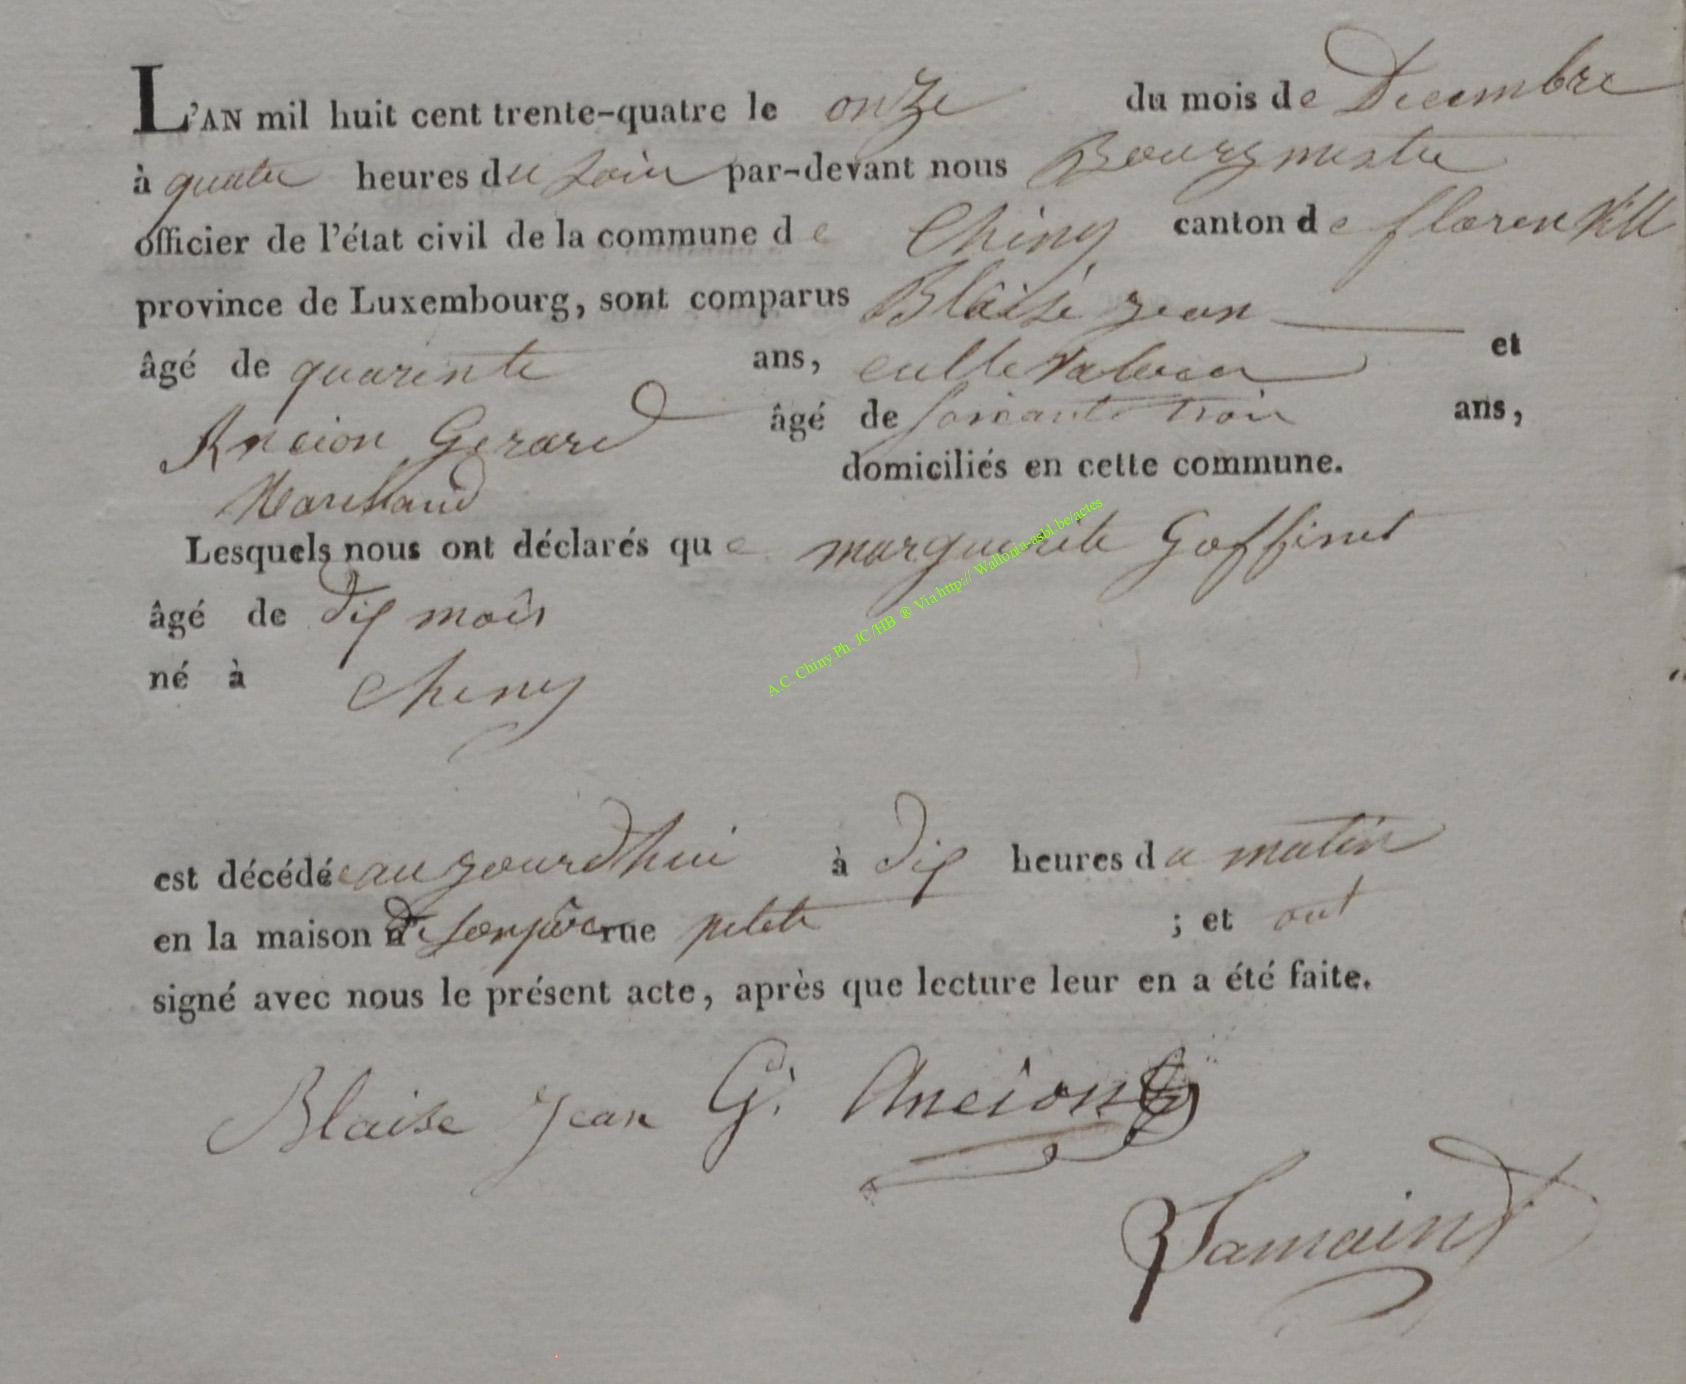 L'AN mil huit cent trente-quatre le onze du mois de Decembre
à quatre heures du soir par-devant nous Bourgmestre
officier de l'état civil de la commune de Chiny canton de florenville
province de Luxembourg, sont comparus Blâise Jean
âgé de quarente ans, cultevateur et
Ancion Gerard âgé de soixante trois ans,
Marchand domiciliés en cette commune.
Lesquels nous ont déclarés que marguerite Goffinet
âgé de dix mois
né à Chiny
est décédée aujourdhui à dix heures du matin
en la maison de son père rue petite ; et ont
signé avec nous le présent acte, après que lecture leur en a été faite.
Blaise Jean G. Ancion
A.C. Chiny Ph. JC/HB ® Via http:// Wallonia-asbl.be/actes